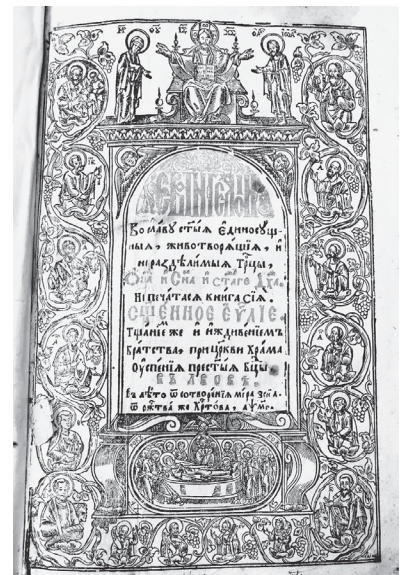 МР ѲУ ІС ХС
ЕѴАНГЕЛИЕ
Во славу ст҃ыѧ Єдиносущ-
ныѧ, животворѧщїѧ, и
нераздѣлимыѧ Трⷪ҇цы,
Ѻц҃а и Сн҃а и ст҃аго Дх҃а.
Напечатасѧ книга сїѧ.
СЩ҃ЕННОЕ ЄѴ҃ЛІЕ.
Тщанїемъ же и иждивенїемъ
Братства, при церкви Храма
Оуспенїѧ прест҃ыѧ Бцы
ВЪ ЛВОВѢ.
Въ лѣто ѿ сотворенїѧ мїра
ѿ рж҃тва же Хр҃това, ахмг.